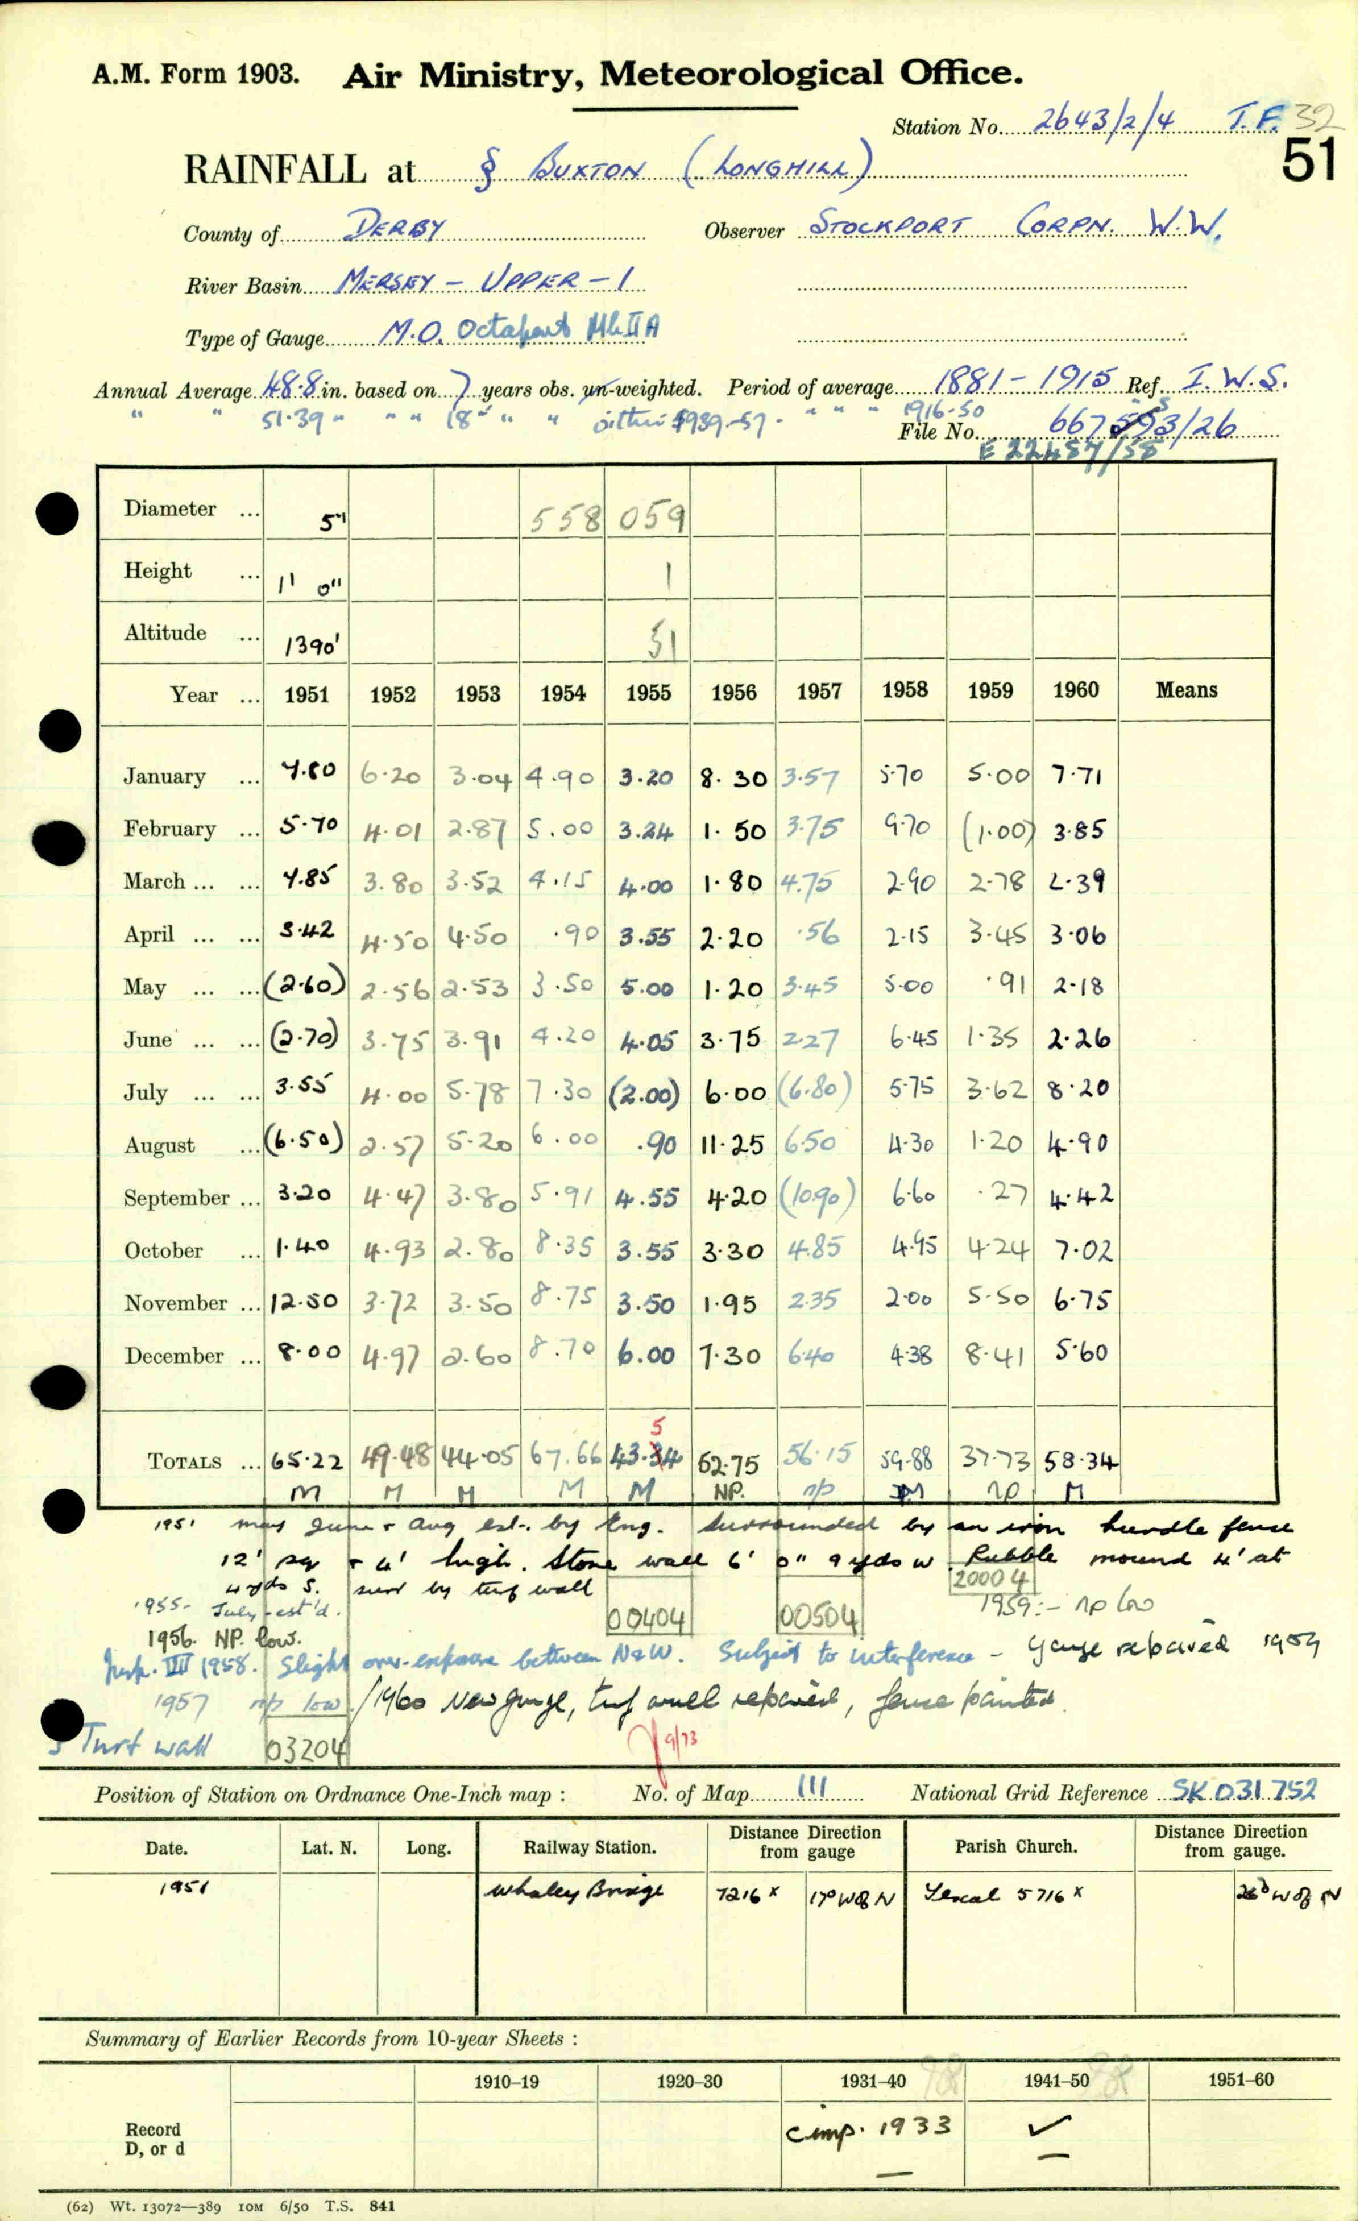 A.M. Form 1903. Air Ministry, Meteorological Office.
Station No. 2643/2/4 T.F. 32
51
RAINFALL at § BUXTON (LONGHILL)
County of DERBY Observer STOCKPORT CORPN. W.W.
River Basin MERSEY - UPPER - 1
Type of Gauge M.O. Octapent Mk II A
Annual Average 48.8 in. based on 7 years obs. un-weighted. Period of average 1881-1915 Ref. I.W.S.
" " 51.39 " " " 18 " " " within 1939-57. " " " 1916-50
File No. 667593/26
E 22487/58
Diameter ... 5" 558 059
Height ... 1' 0" 1
Altitude ... 1390' 51
Year ... 1951 1952 1953 1954 1955 1956 1957 1958 1959 1960 Means
January ... 7.80 6.20 3.04 4.90 3.20 8.30 3.57 5.70 5.00 7.71
February ... 5.70 4.01 2.87 5.00 3.24 1.50 3.75 9.70 (1.00) 3.85
March ... ... 7.85 3.80 3.52 4.15 4.00 1.80 4.75 2.90 2.78 2.39
April ... ... 3.42 4.50 4.50 .90 3.55 2.20 .56 2.15 3.45 3.06
May ... ... (2.60) 2.56 2.53 3.50 5.00 1.20 3.45 5.00 .91 2.18
June ... ... (2.70) 3.75 3.91 4.20 4.05 3.75 2.27 6.45 1.35 2.26
July ... ... 3.55 4.00 5.78 7.30 (2.00) 6.00 (6.80) 5.75 3.62 8.20
August ... (6.50) 2.57 5.20 6.00 .90 11.25 6.50 4.30 1.20 4.90
September ... 3.20 4.47 3.80 5.91 4.55 4.20 (10.90) 6.60 .27 4.42
October ... 1.40 4.93 2.80 8.35 3.55 3.30 4.85 4.95 4.24 7.02
November ... 12.50 3.72 3.50 8.75 3.50 1.95 2.35 2.00 5.50 6.75
December ... 8.00 4.97 2.60 8.70 6.00 7.30 6.40 4.38 8.41 5.60
5
TOTALS ... 65.22 49.48 44.05 67.66 43.34 62.75 56.15 59.88 37.73 58.34
M M M M M NP. np M np M
1951 may June & Aug est. by Eng. Surrounded by an iron hurdle fence
12' sq & 4' high. Stone wall 6' 0" 9 yds W. Rubble mound 4' at
4 yds S. surr by turf wall 20004
1955- July-est'd. 00404 00504 1959:- np low
1956. NP. low.
Insp. III 1958. Slight over-exposure between N & W. Subject to interference - Gauge repaired 1959
1957 np low / 1960 New gauge, turf wall repaired, fence painted.
5 Turf wall 03204 9/73
Position of Station on Ordnance One-Inch map : No. of Map 111 National Grid Reference SK 031 752
Date. Lat. N. Long. Railway Station. Distance from gauge Direction Parish Church. Distance from gauge. Direction
1951 Whaley Bridge 7216 x 17° W of N 5716 x 26° W of N
Summary of Earlier Records from 10-year Sheets :
1910-19 1920-30 1931-40 98 1941-50 98 1951-60
Record
D, or d comp. 1933 ✓
(62) Wt. 13072—389 10M 6/50 T.S. 841